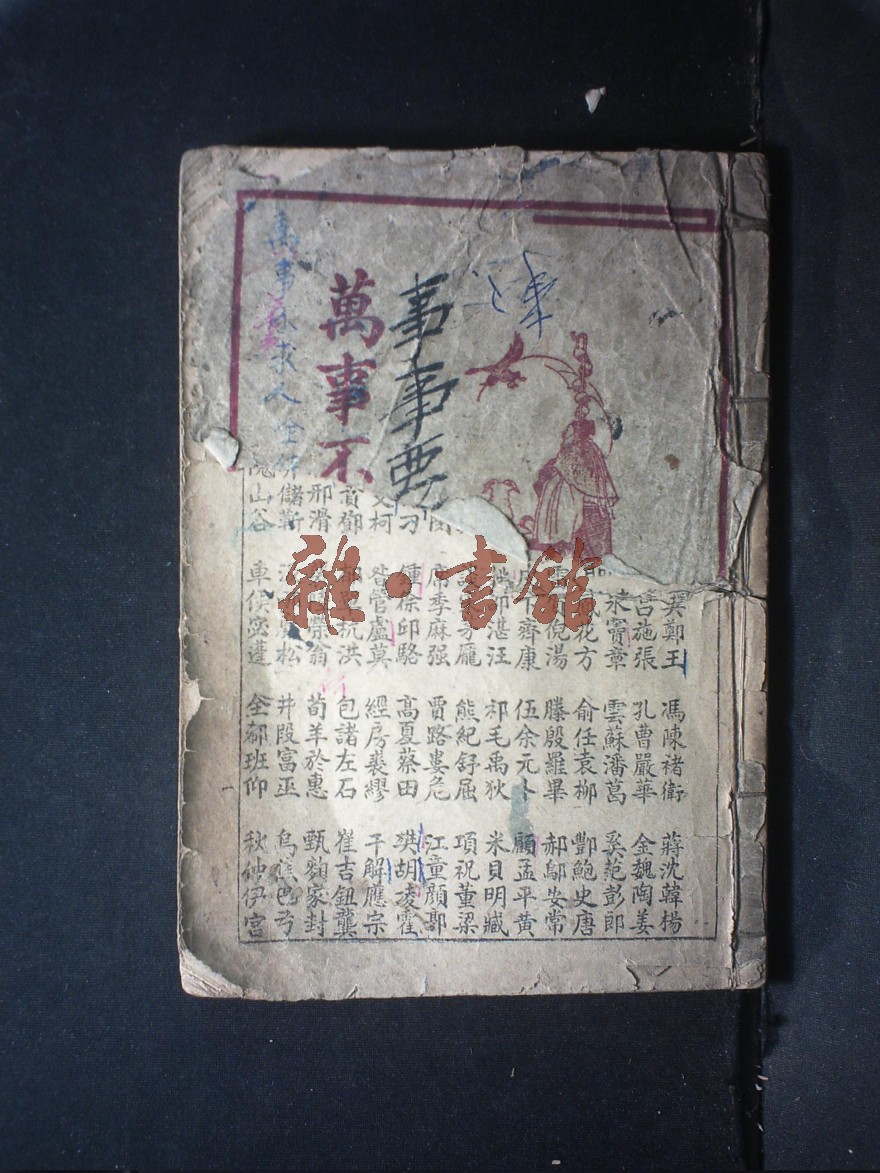 事事要
萬事不
萬事不求人全
雜·書館
吴鄭王 馮陳褚衛 蔣沈韓楊
呂施張 孔曹嚴華 金魏陶姜
水竇章 雲蘇潘葛 奚范彭郎
花方 俞任袁柳 酆鮑史唐
倪湯 滕殷羅畢 郝鄔安常
卞齊康 伍余元卜 顧孟平黃
湛汪 祁毛禹狄 米貝明臧
龐 熊紀舒屈 項祝董梁
席季麻强 賈路婁危 江童顏郭
刁 鍾徐邱駱 高夏蔡田 樊胡凌霍
柯 昝管盧莫 經房裘繆 干解應宗
賁鄧 洪 包諸左石 崔吉鈕龔
邢滑 榮翁 荀羊於惠 甄麴家封
儲靳 松 井段富巫 烏焦巴弓
隗山谷 車侯宓蓬 全郗班仰 秋仲伊宮